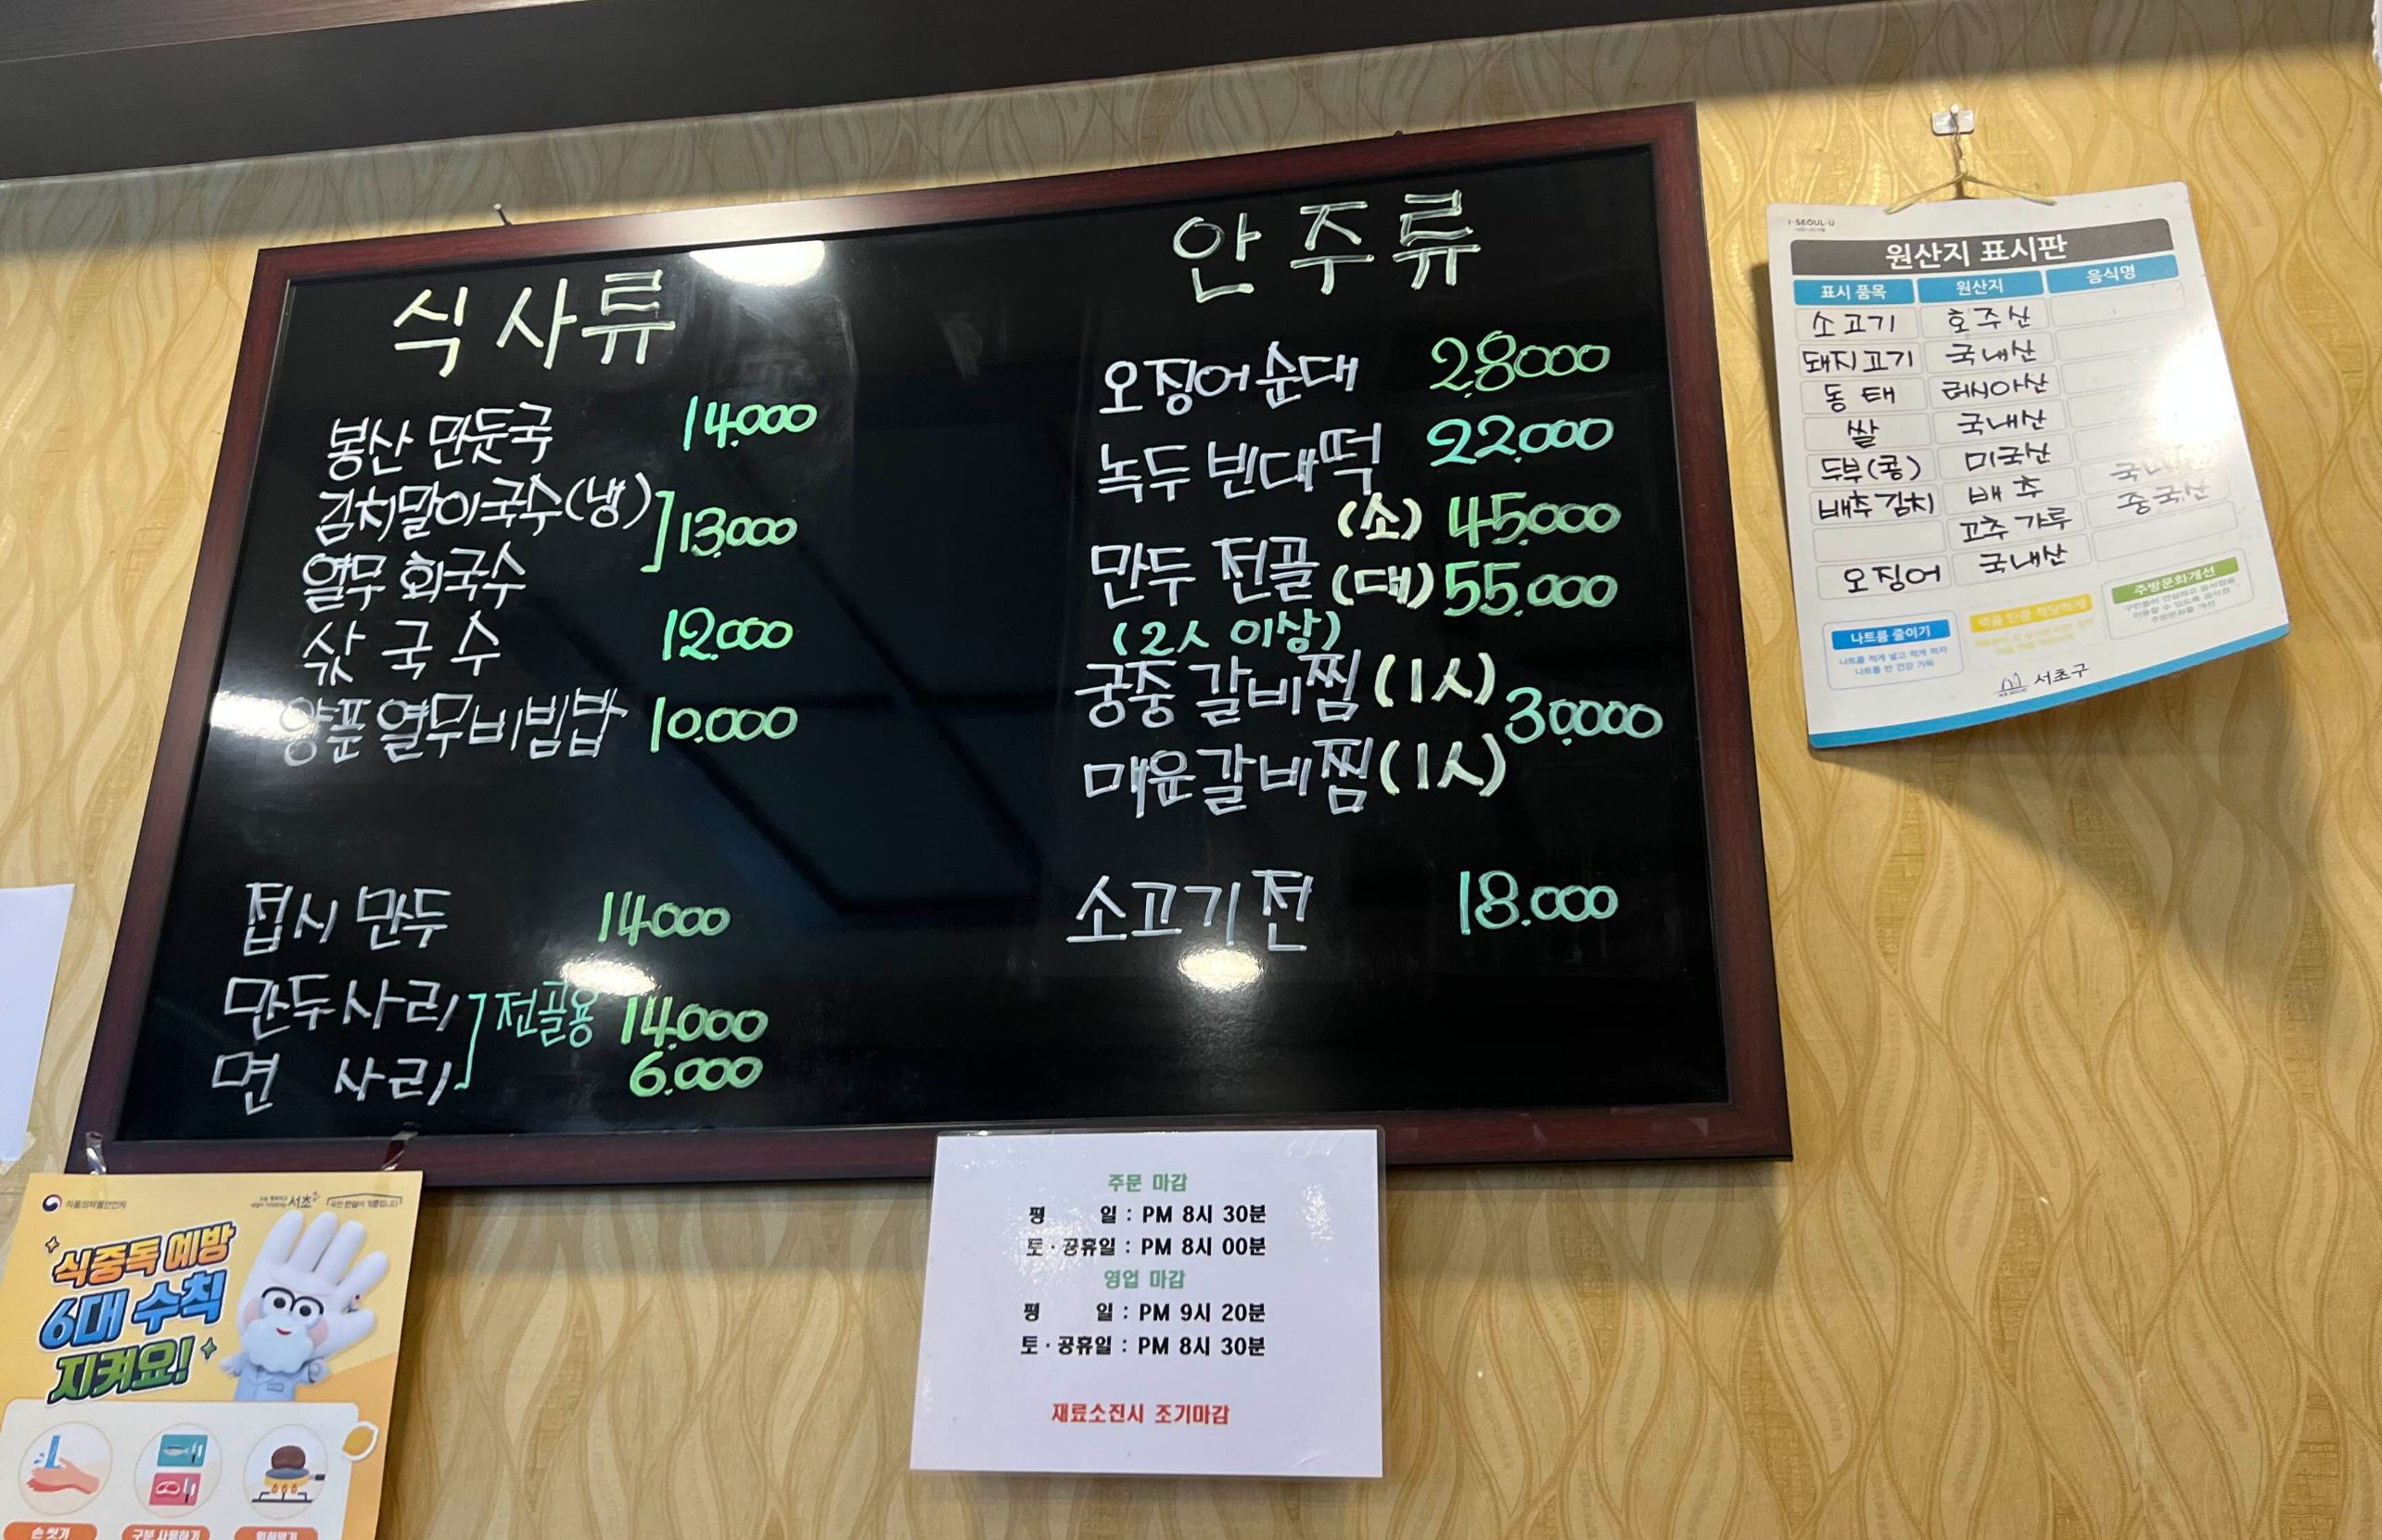 식사류
봉산 만둣국 14.000
김치말이국수(냉)
열무 회국수 ] 13.000
삯국수 12.000
양푼 열무비빔밥 10.000
접시 만두 14.000
만두사리
면 사리 ] 전골용 14.000
6.000
안주류
오징어순대 28.000
녹두 빈대떡 22.000
만두 전골 (소) 45.000
(대) 55.000
(2人 이상)
궁중 갈비찜 (1人)
매운갈비찜 (1人) 30.000
소고기전 18.000
I·SEOUL·U
원산지 표시판
표시 품목 원산지 음식명
소고기 호주산
돼지고기 국내산
동태 러시아산
쌀 국내산
두부(콩) 미국산
배추김치 배추 국내산
고추가루 중국산
오징어 국내산
나트륨 줄이기
나트륨 적게 넣고 적게 먹자
나트륨 반 건강 가득
주방문화개선
서초구
주문 마감
평 일 : PM 8시 30분
토·공휴일 : PM 8시 00분
영업 마감
평 일 : PM 9시 20분
토·공휴일 : PM 8시 30분
재료소진시 조기마감
식품의약품안전처
서초
식중독 예방
6대 수칙
지켜요!
손 씻기
구분 사용하기